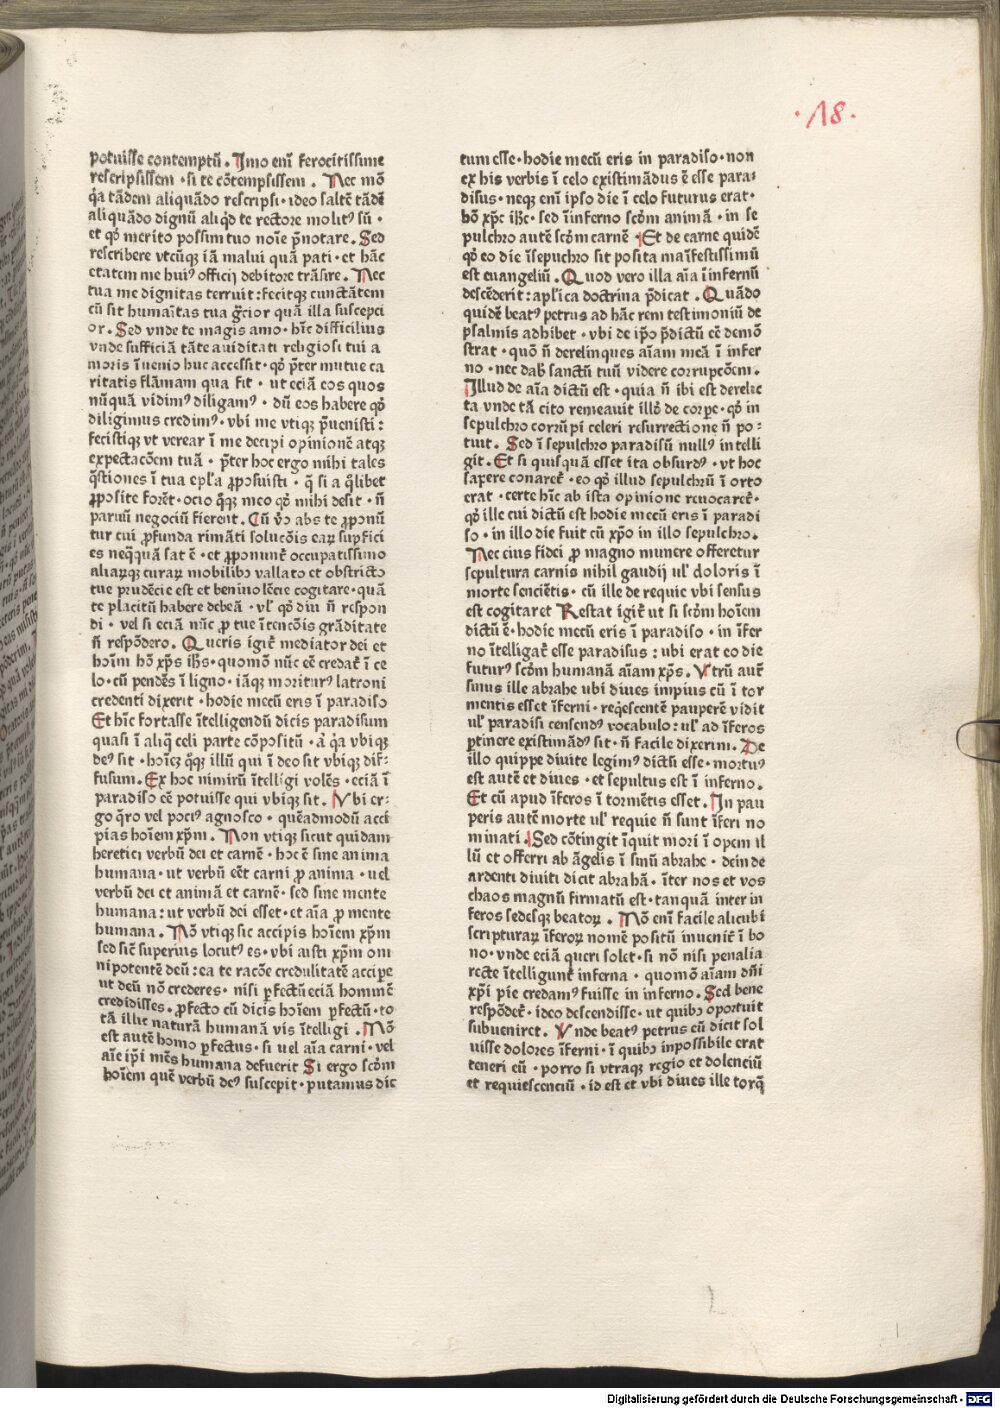 ·18·
potuisse contemptū. Jmo enī ferocitissime
rescripsissem · si te cōtempsissem. Nec mō
q̇a tādem aliquādo rescripsi · ideo saltē tādē
aliquādo dignū aliqd te rectore molitꝰ sū ·
et qđ merito possim tuo noīe p̄notare. Sed
rescribere vtcūqꝫ iā malui quā pati · et hāc
etatem me huiꝰ officij debitore trāsire. Nec
tua me dignitas terruit: fecitqꝫ cunctātem
cū sit humaītas tua grācior quā illa suscepci
or. Sed vnde te magis amo · hīc difficilius
vnde sufficiā tāte auiditati religiosi tui a
moris īuenio huc accessit · qđ p̄ter mutue ca
ritatis flāmam qua fit · ut eciā eos quos
nūquā vidimꝰ diligamꝰ · dū eos habere qđ
diligimus credimꝰ · vbi me vtiqꝫ p̄uenisti:
fecistiqꝫ vt verear ī me decipi opinionē atqꝫ
expectacōem tuā · p̄ter hoc ergo mihi tales
q̄stiones ī tua epl'a ꝓposuisti · q̄ si a q̇libet
ꝓposite forēt · ocio q̄qꝫ meo qđ mihi desit · n̄
paruū negociū fierent. Cū v̊o abs te ꝓponū
tur cui ꝓfunda rimāti solucōis eaꝝ supfici
es neq̄quā sat ē · et ꝓponunt̄ occupatissimo
aliaꝝqꝫ curaꝝ mobilibꝰ vallato et obstricto
tue prudēcie est et beniuolēcie cogitare · quā
te placitū habere debeā · vl' qđ diu n̄ respon
di · vel si eciā nūc ꝓ tue ītencōis grāditate
n̄ respōdero. Queris igit̄ mediator dei et
hoīm hō xp̄s ih̄s · quomō nūc eē credat̄ ī ce
lo · cū pendēs ī ligno · iāqꝫ moriturꝰ latroni
credenti dixerit · hodie mecū eris ī paradiso
Et hīc fortasse ītelligendū dicis paradisum
quasi ī aliq̇ celi parte cōpositū · a q̇a vbiqꝫ
deꝰ sit · hoīeqꝫ q̄qꝫ illū qui ī deo sit vbiqꝫ dif-
fusum. Ex hoc nimirū ītelligi volēs · eciā ī
paradiso eē potuisse qui vbiqꝫ sit. Vbi er-
go q̄ro vel pociꝰ agnosco · quēadmodū acci
pias hoīem xp̄m. Non vtiqꝫ sicut quidam
heretici verbū dei et carnē · hoc ē sine anima
humana · ut verbū eēt carni ꝓ anima · uel
verbū dei et animā et carnē · sed sine mente
humana: ut verbū dei esset · et aīa ꝓ mente
humana. Nō vtiqꝫ sic accipis hoīem xp̄m
sed sic̄ superius locutꝰ es · vbi aisti xp̄m om
nipotentē deū: ea te racōe credulitatē accipe
ut deū nō crederes · nisi ꝑfectū eciā hominē
credidisses. ꝓfecto cū dicis hoīem ꝑfectū · to
tā illic naturā humanā vis ītelligi. Nō
est autē homo ꝑfectus · si uel aīa carni · vel
aīe ip̄i mēs humana defuerit Si ergo scđm
hoīem quē verbū deꝰ suscepit · putamus dic
tum esse · hodie mecū eris in paradiso · non
ex his verbis ī celo existimādus ē esse para-
disus · neqꝫ enī ipso die ī celo futurus erat ·
hō xp̄c ih̄c · sed īinferno scđm animā · in se
pulchro autē scđm carnē Et de carne quidē
qđ eo die īsepuchro sit posita maīfestissimū
est euangeliū. Quod vero illa aīa īinfernū
descēderit: apl'ica doctrina p̄dicat. Quādo
quidē beatꝰ petrus ad hāc rem testimoniū de
psalmis adhibet · vbi de ip̄o p̄dictū eē demō
strat · quō n̄ derelinques aīam meā ī infer
no · nec dab̄ sanctū tuū videre corrupcōem.
Illud de aīa dictū est · quia n̄ ibi est derelic
ta vnde tā cito remeauit illđ de corꝑe · qđ in
sepulchro corrūpi celeri resurrectione n̄ po-
tuit. Sed ī sepulchro paradisū nullꝰ intelli
git. Et si quisquā esset ita obsurdꝰ · vt hoc
sapere conaret̄ · eo qđ illud sepulchrū ī orto
erat · certe hīc ab ista opinione reuocaret̄ ·
qđ ille cui dictū est hodie mecū eris ī paradi
so · in illo die fuit cū xp̄o in illo sepulchro.
Nec eius fidei ꝓ magno munere offeretur
sepultura carnis nihil gaudij ul' doloris ī
morte senciētis · cū ille de requie vbi sensus
est cogitaret Restat igit̄ ut si scđm hoīem
dictū ē · hodie mecū eris ī paradiso · in īfer
no ītelligat̄ esse paradisus : ubi erat eo die
futurꝰ scđm humanā aīam xp̄s. Vtrū aut̄
sinus ille abrahe ubi diues impius cū ī tor
mentis esset īferni · reqꝫescentē pauperē vidit
ul' paradisi censendꝰ vocabulo: ul' ad īferos
ꝑtinere existimādꝰ sit · n̄ facile dixerim. De
illo quippe diuite legimꝰ dictū esse · mortuꝰ
est autē et diues · et sepultus est ī inferno.
Et cū apud īferos ī tormētis esset. In pau
peris autē morte ul' requie n̄ sunt īferi no
minati. Sed cōtingit īquit mori ī opem il
lū et offerri ab āgelis ī sinū abrahe · dein de
ardenti diuiti dicit abrahā · īter nos et vos
chaos magnū firmatū est · tanquā inter in
feros sedesqꝫ beatoꝝ. Nō enī facile alicubi
scripturaꝝ īferoꝝ nomē positū inuenit̄ ī bo
no · vnde eciā queri solet · si nō nisi penalia
recte ītelligunt̄ inferna · quomō aīam dn̄i
xp̄i pie credamꝰ fuisse in inferno. Sed bene
respōdet̄ · ideo descendisse · ut quibꝰ oportuit
subueniret. Vnde beatꝰ petrus cū dicit sol
uisse dolores īferni · ī quibꝰ inpossibile erat
teneri eū · porro si vtraqꝫ regio et dolenciū
et requiescenciū · id est et vbi diues ille torq̄
Digitalisierung gefördert durch die Deutsche Forschungsgemeinschaft - DFG